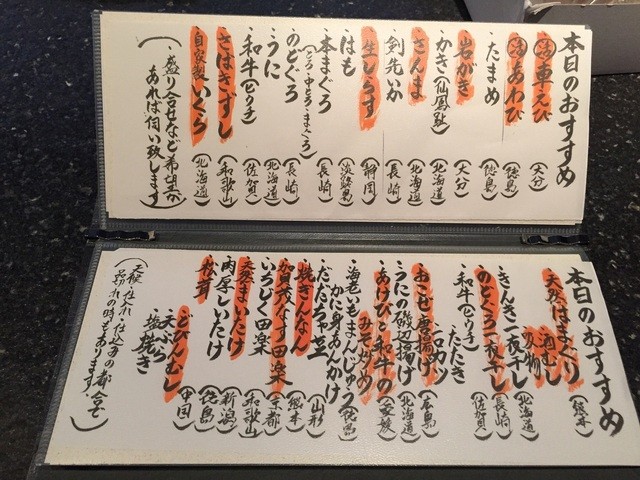 本日のおすすめ
活車えび（大分）
活あわび（徳島）
たまめ（徳島）
岩がき（大分）
かき（仙鳳趾）（北海道）
さんま（北海道）
剣先いか（長崎）
生しらす（静岡）
はも（淡路島）
本まぐろ（長崎）
（とろ・中とろ・まぐろ）
のどぐろ（長崎）
うに（北海道）
和牛（とり子）（佐賀）
さばきずし（和歌山）
自家製いくら（北海道）
（盛り合せなど希望が
あれば伺い致します
本日のおすすめ
天然はまぐり（熊本）
酒むし
吸物
きんき一夜干し（北海道）
のどぐろ一夜干し（長崎）
和牛（とり子）たたき（佐賀）
一口カツ
おこぜ唐揚げ（広島）
うにの磯辺揚げ（北海道）
あけびと和牛の（愛媛）
みそ炒め
海老いもまんじゅう（徳島）
かに身あんかけ
だだちゃ豆（山形）
焼ぎんなん（熊本）
賀茂なす田楽（京都）
いちじく田楽（和歌山）
天然まいたけ（新潟）
肉厚しいたけ（徳島）
松茸（中国）
どびんむし
天ぷら
塩焼き
（天候・仕入れ・仕込等の都合で
品切れの時もあります。）